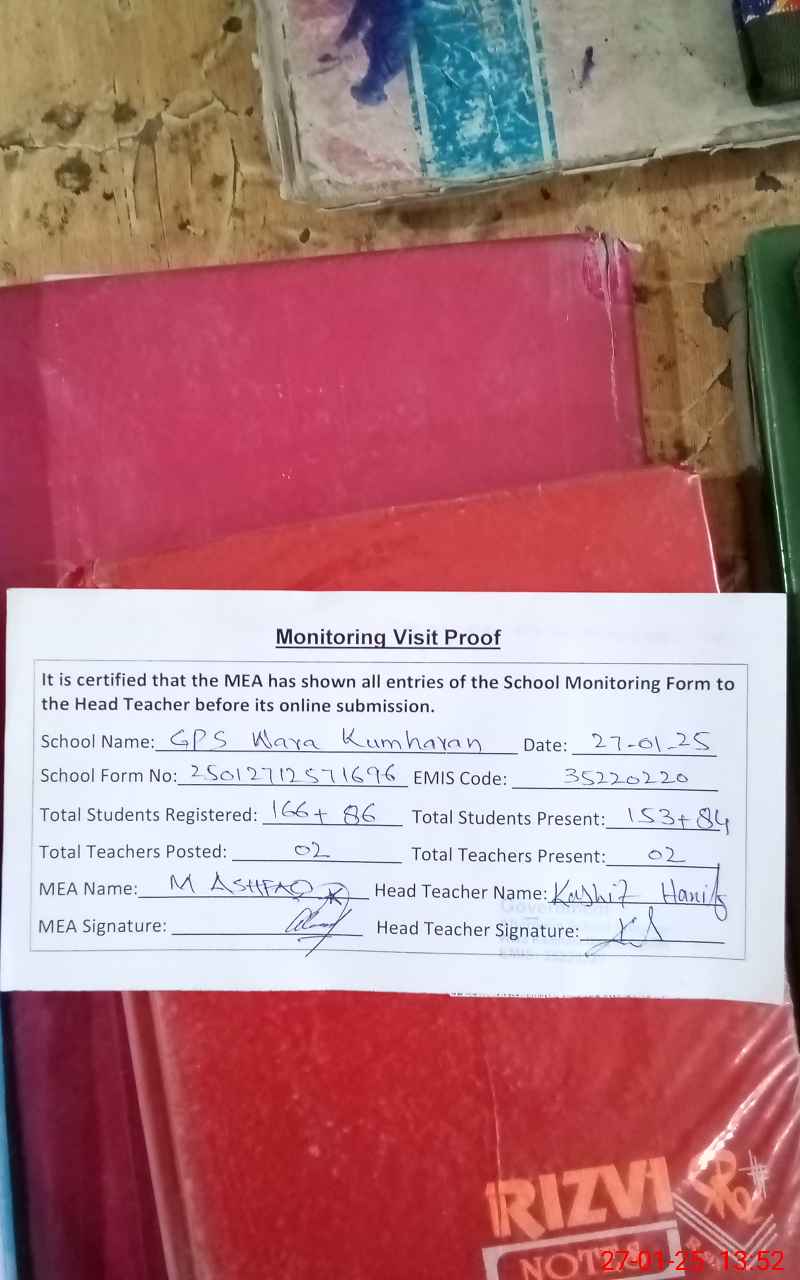 Monitoring Visit Proof
It is certified that the MEA has shown all entries of the School Monitoring Form to
the Head Teacher before its online submission.
School Name: GPS Wara Kumharan Date: 27-01-25
School Form No: 25012712571696 EMIS Code: 35220220
Total Students Registered: 166+ 86 Total Students Present: 153+84
Total Teachers Posted: 02 Total Teachers Present: 02
MEA Name: M ASHFAQ Head Teacher Name: Kashif Hanif
MEA Signature: Head Teacher Signature:
Government
RIZVI
NOTES
27-01-25 13:52